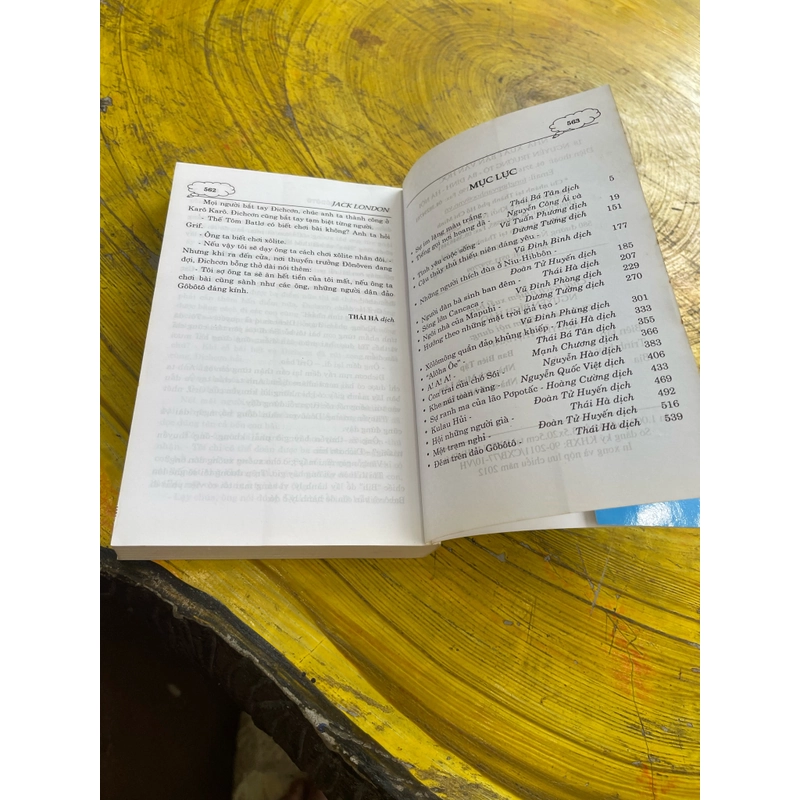 562
JACK LONDON
Mọi người bắt tay Đichcơn, chúc anh ta thành công ở
Karô Karô. Đichcơn cũng bắt tay tạm biệt từng người.
- Thế Tôm Batlơ có biết chơi bài không? Anh ta hỏi
Grif.
- Ông ta biết chơi xôlite.
- Nếu vậy tôi sẽ dạy ông ta cách chơi xôlite nhân đôi.
Nhưng khi ra đến cửa, nơi thuyền trưởng Đônôven đang
đợi, Đichcơn bỗng thở dài nói thêm:
- Tôi sợ ông ta sẽ ăn hết tiền của tôi mất, nếu ông ta
chơi bài cũng sành như các ông, những người dân đảo
Gôbôtô đáng kính.
THÁI HÀ dịch
563
MỤC LỤC
- Sự im lặng màu trắng - Thái Bá Tân dịch 5
- Tiếng gọi nơi hoang dã - Nguyễn Công Ái và 19
Vũ Tuấn Phương dịch
- Tình yêu cuộc sống - Dương Tường dịch 151
- Cậu thủy thủ thiếu niên đáng yêu -
Vũ Đình Bình dịch 177
- Những người thích đùa ở Niu-Hibbôn -
Đoàn Tử Huyến dịch 185
- Người đàn bà sinh ban đêm - Thái Hà dịch 207
- Sòng lớn Cancaca - Vũ Đình Phòng dịch 229
- Ngôi nhà của Mapuhi - Dương Tường dịch 270
- Hướng theo những mặt trời giả tạo -
Vũ Đình Phùng dịch 301
- Xôlômông quần đảo khủng khiếp - Thái Hà dịch 333
- "Alôha Ôe" - Thái Bá Tân dịch 355
- A! A! A! - Mạnh Chương dịch 366
- Con trai của chó Sói - Nguyễn Hào dịch 383
- Kho núi toàn vàng - Nguyễn Quốc Việt dịch 406
- Sự ranh ma của lão Popotắc - Hoàng Cường dịch 433
- Kulau Hủi - Đoàn Tử Huyến dịch 469
- Hội những người già - Thái Hà dịch 492
- Một trạm nghỉ - Đoàn Tử Huyến dịch 516
- Đêm trên đảo Gôbôtô - Thái Hà dịch 539